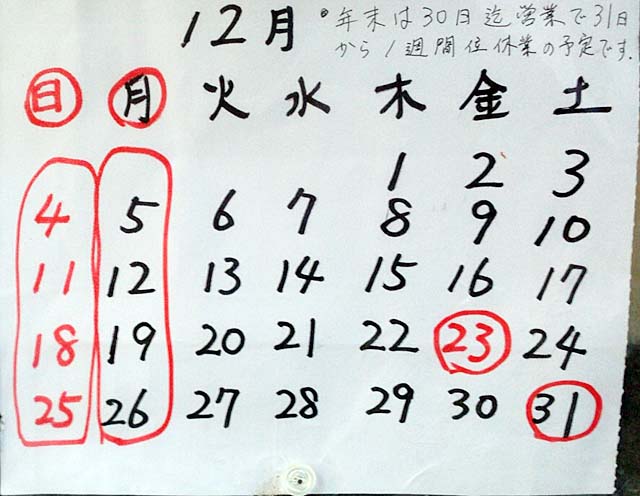 12月
・年末は30日迄営業で31日
から1週間位休業の予定です.
日 月 火 水 木 金 土
1 2 3
4 5 6 7 8 9 10
11 12 13 14 15 16 17
18 19 20 21 22 23 24
25 26 27 28 29 30 31